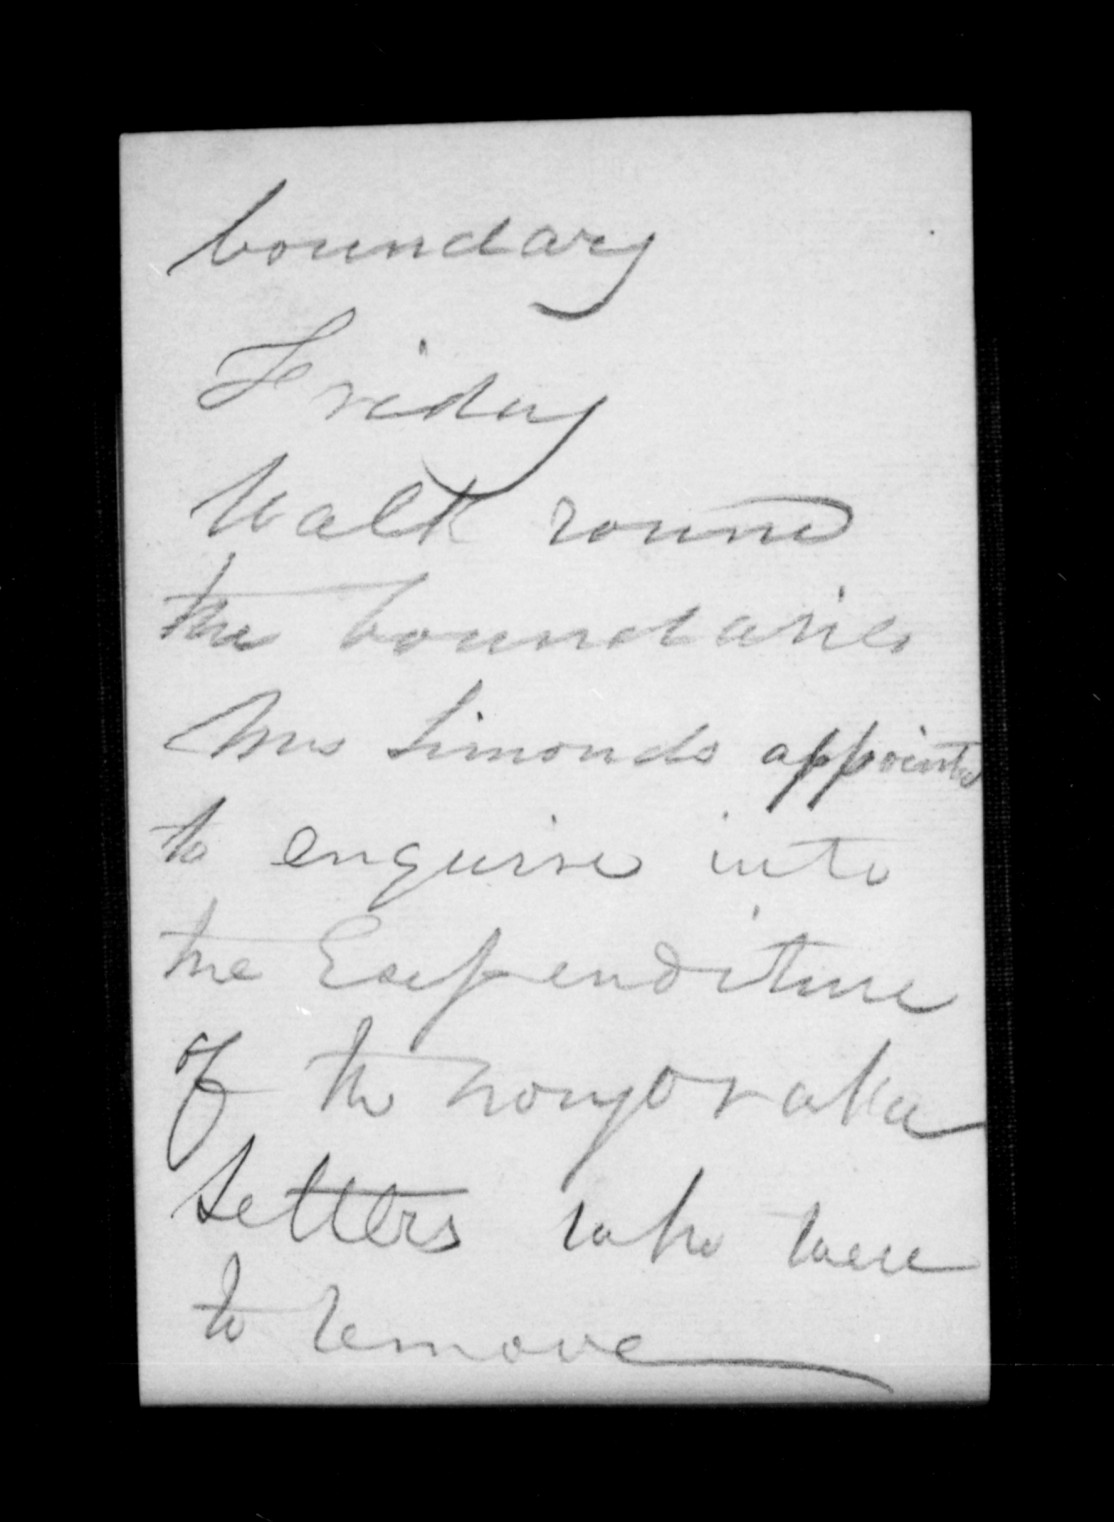 boundary
Friday
Walk round
the boundaries
Mrs Simonds appointed
to enquire into
the Expenditure
of the
Setlers who were
to remove